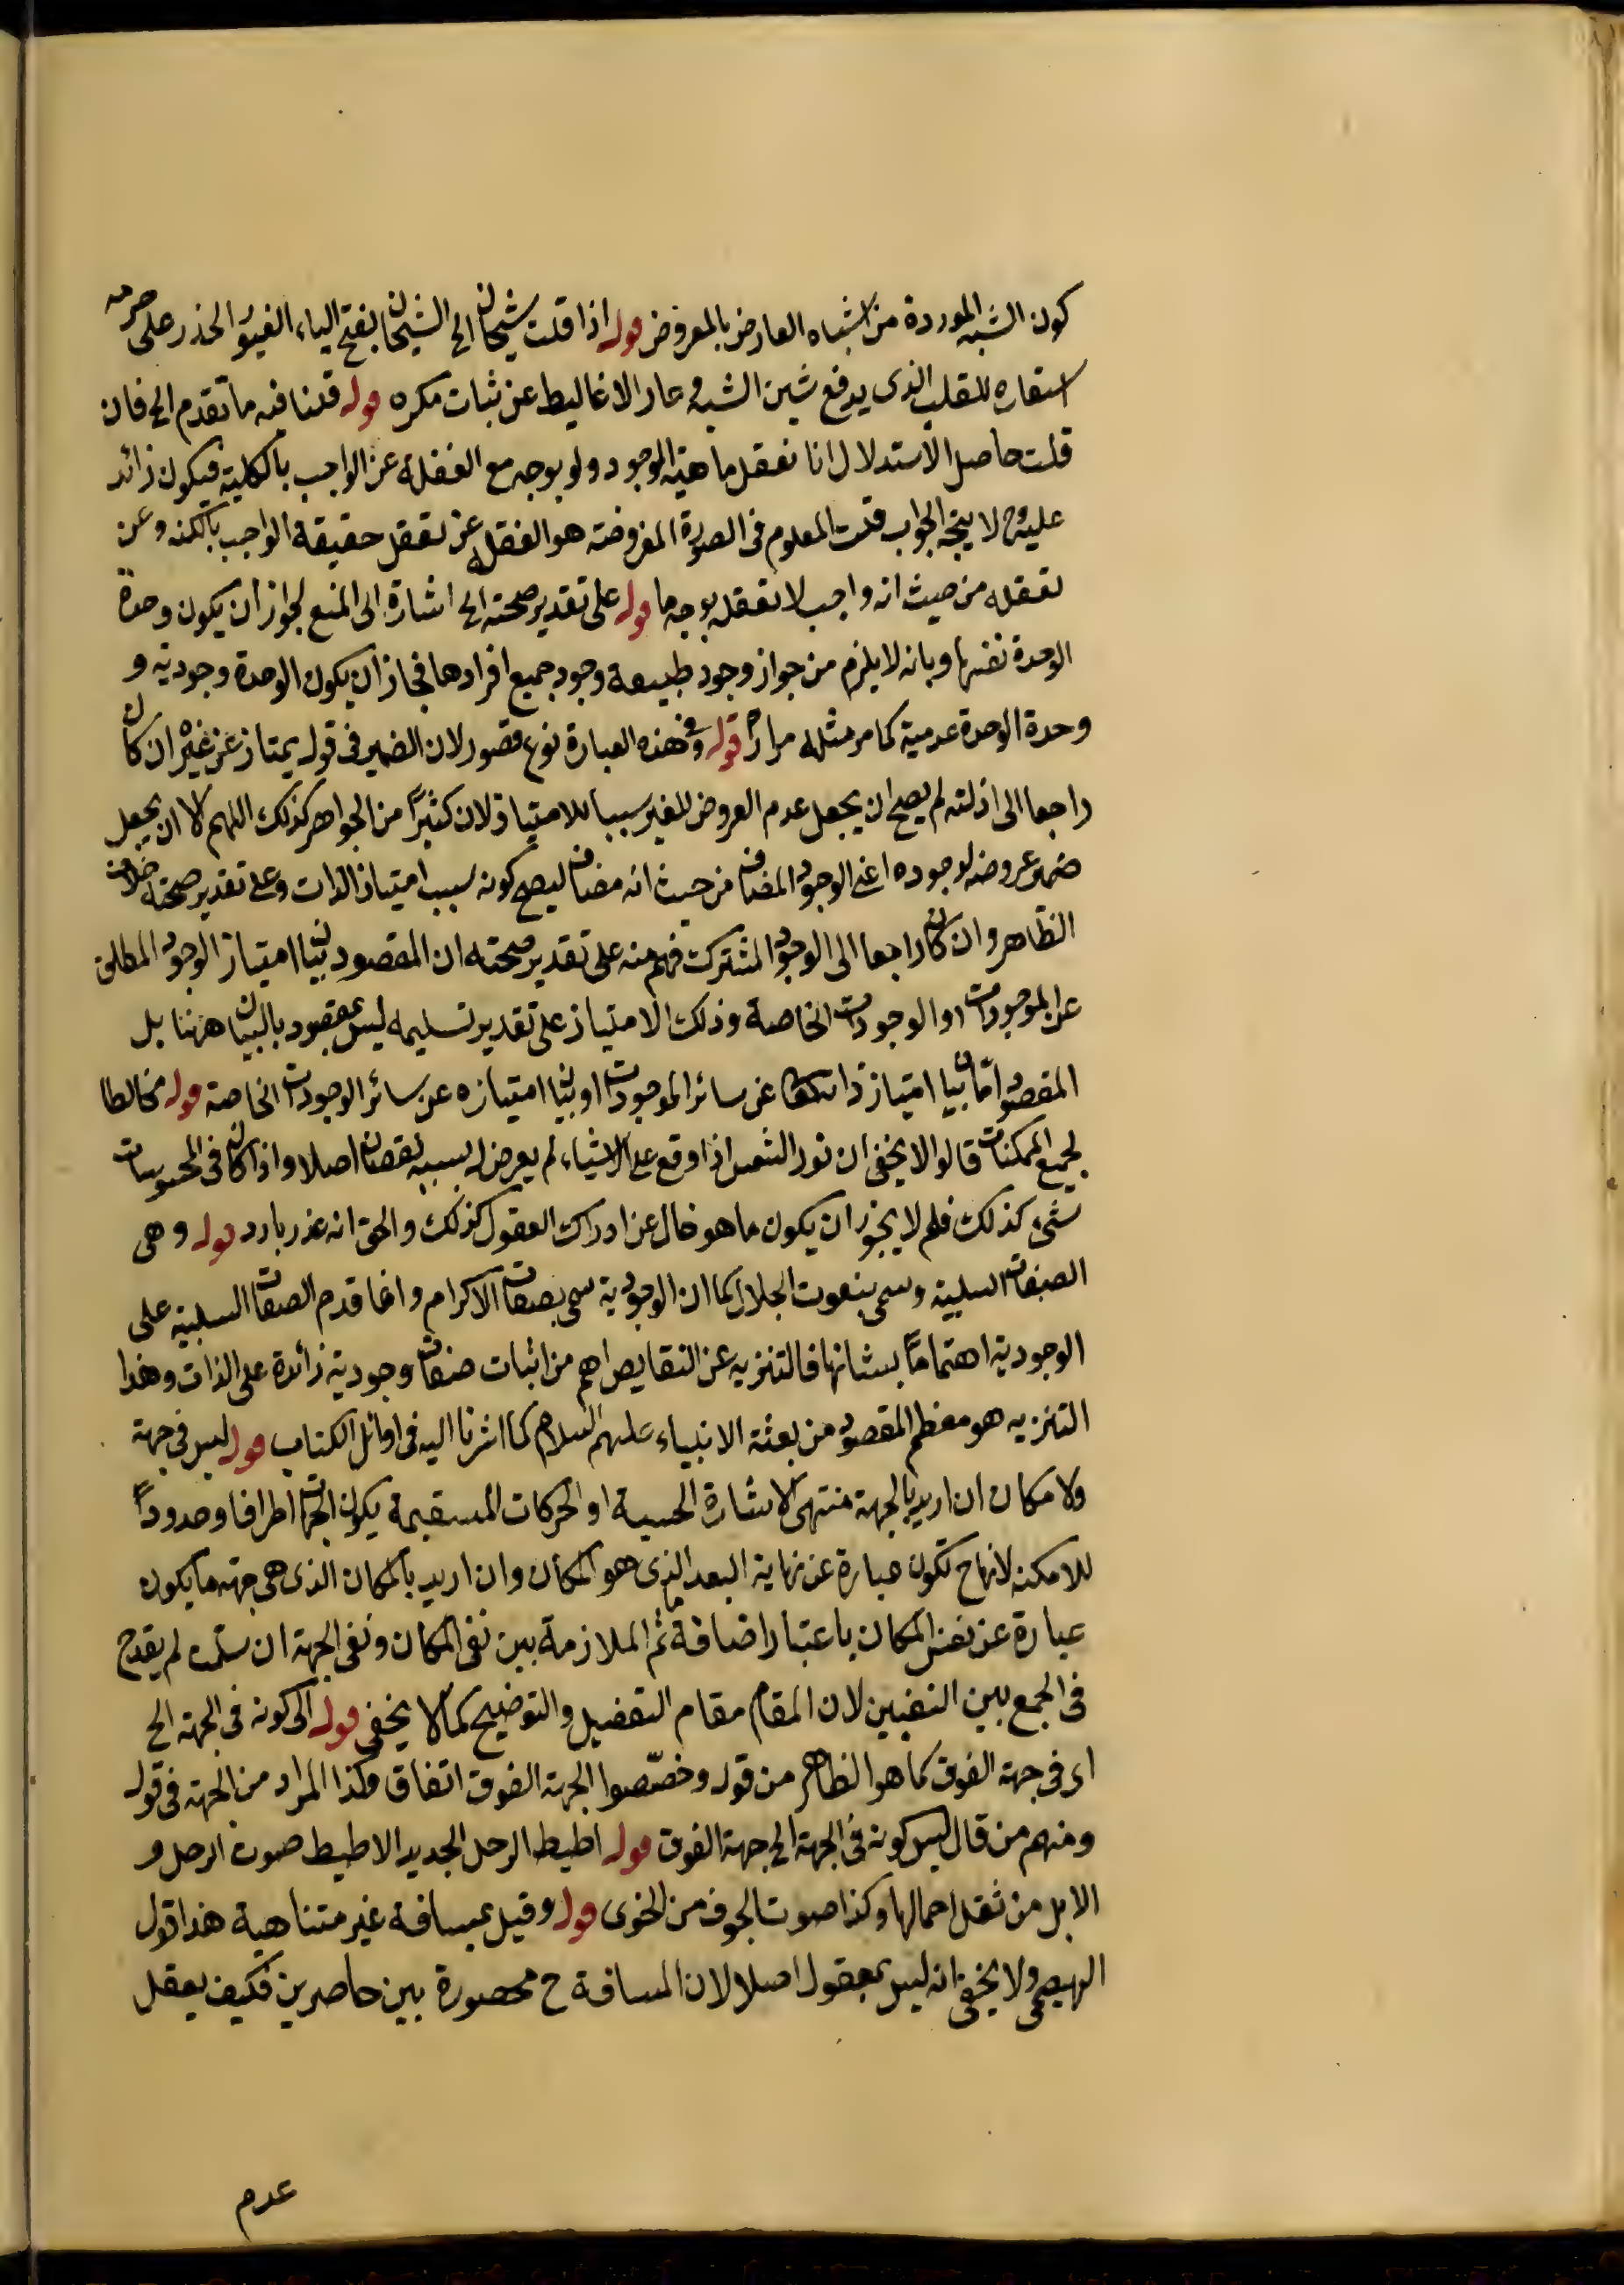 كون الشبه الموردة من اشباه العارض بالمعروض قوله اذا قلت شيحان الخ الشيحان بفتح الياء الغيور الحذر على حرمه
استعاره للقلب الذى يدفع شين الشبه و عار الاغاليط عن ثبات مكره قوله قلنا فيه ما تقدم الخ فان
قلت حاصل الاستدلال انا نعقل ماهية الوجود ولو بوجه مع الغفلة عن الواجب بالكلية فيكون زائد
عليه وح لا يتجه الجواب قلت المعلوم فى الصورة المفروضة هو الغفلة عن تعقل حقيقة الواجب بالكنه وعن
تعقله من حيث انه واجب لا تعقله بوجه ما قوله على تقدير صحته الخ اشارة الى المنع لجواز ان يكون وحدة
الوحدة نفسها وبانه لا يلزم من جواز وجود طبيعة وجود جميع افرادها فجاز ان يكون الوحدة وجودية و
وحدة الوحدة عدمية كما مر مثله مرارا قوله وفى هذه العبارة نوع قصور لان الضمير فى قوله يمتاز عن غيره ان كان
راجعا الى ذاته لم يصح ان يجعل عدم العروض للغير سببا للامتياز لان كثيرا من الجواهر كذلك اللهم الا ان يجعل
ضمير عروضه لوجوده اعنى الوجود المضاف من حيث انه مضاف ليصح كونه سبب امتياز الذات وعلى تقدير صحته خلاف
الظاهر وان كان راجعا الى الوجود المشترك فهم منه على تقدير صحته ان المقصود بيان امتياز الوجود المطلق
عن الموجودات او الوجودات الخاصة وذلك الامتياز على تقدير تسليمه ليس بمقصود بالبيان ههنا بل
المقصود اما بيان امتياز ذاته تعالى عن سائر الموجودات او بيان امتيازه عن سائر الوجودات الخاصة قوله مخالطا
لجميع الممكنات قالوا لا يخفى ان نور الشمس اذا وقع على الاشياء لم يعرض له بسببه نقصان اصلا واذا كان فى المحسوسات
شىء كذلك فلم لا يجوز ان يكون ما هو خال عن ادراك العقول كذلك والحق انه عذر بارد قوله وهى
الصفات السلبية وسمى بنعوت الجلال كما ان الوجودية سمى بصفات الاكرام وانما قدم الصفات السلبية على
الوجودية اهتماما بشانها فالتنزيه عن النقايص اهم من اثبات صفات وجودية زائدة على الذات وهذا
التنزيه هو معظم المقصود من بعثة الانبياء عليهم السلام كما اشرنا اليه فى اوائل الكتاب قوله ليس فى جهة
ولا مكان ان اريد بالجهة منتهى الاشارة الحسية او الحركات المستقيمة يكون الجهات اطرافا وحدودا
للامكنة لانها ح تكون عبارة عن نهاية البعد الذى هو المكان وان اريد بالمكان الذى هى جهة ما يكون
عبارة عن نفس المكان باعتبار اضافة ما ثم الملازمة بين نفى المكان ونفى الجهة ان سلمت لم يقدح
فى الجمع بين النفيين لان المقام مقام التفصيل والتوضيح كما لا يخفى قوله الى كونه فى الجهة الخ
اى فى جهة الفوق كما هو الظاهر من قوله وخصصوا الجهة الفوق اتفاق وكذا المراد من الجهة فى قوله
ومنهم من قال ليس كونه فى الجهة الخ جهة الفوق قوله اطيط الرحل الجديد الاطيط صوت الرحل و
الابل من ثقل احمالها وكذا صوت الجوف من الخوى قوله وقيل بمسافة غير متناهية هذا قول
الهيصمى ولا يخفى انه ليس بمعقول اصلا لان المسافة ح محصورة بين حاصرين فكيف يعقل
عدم